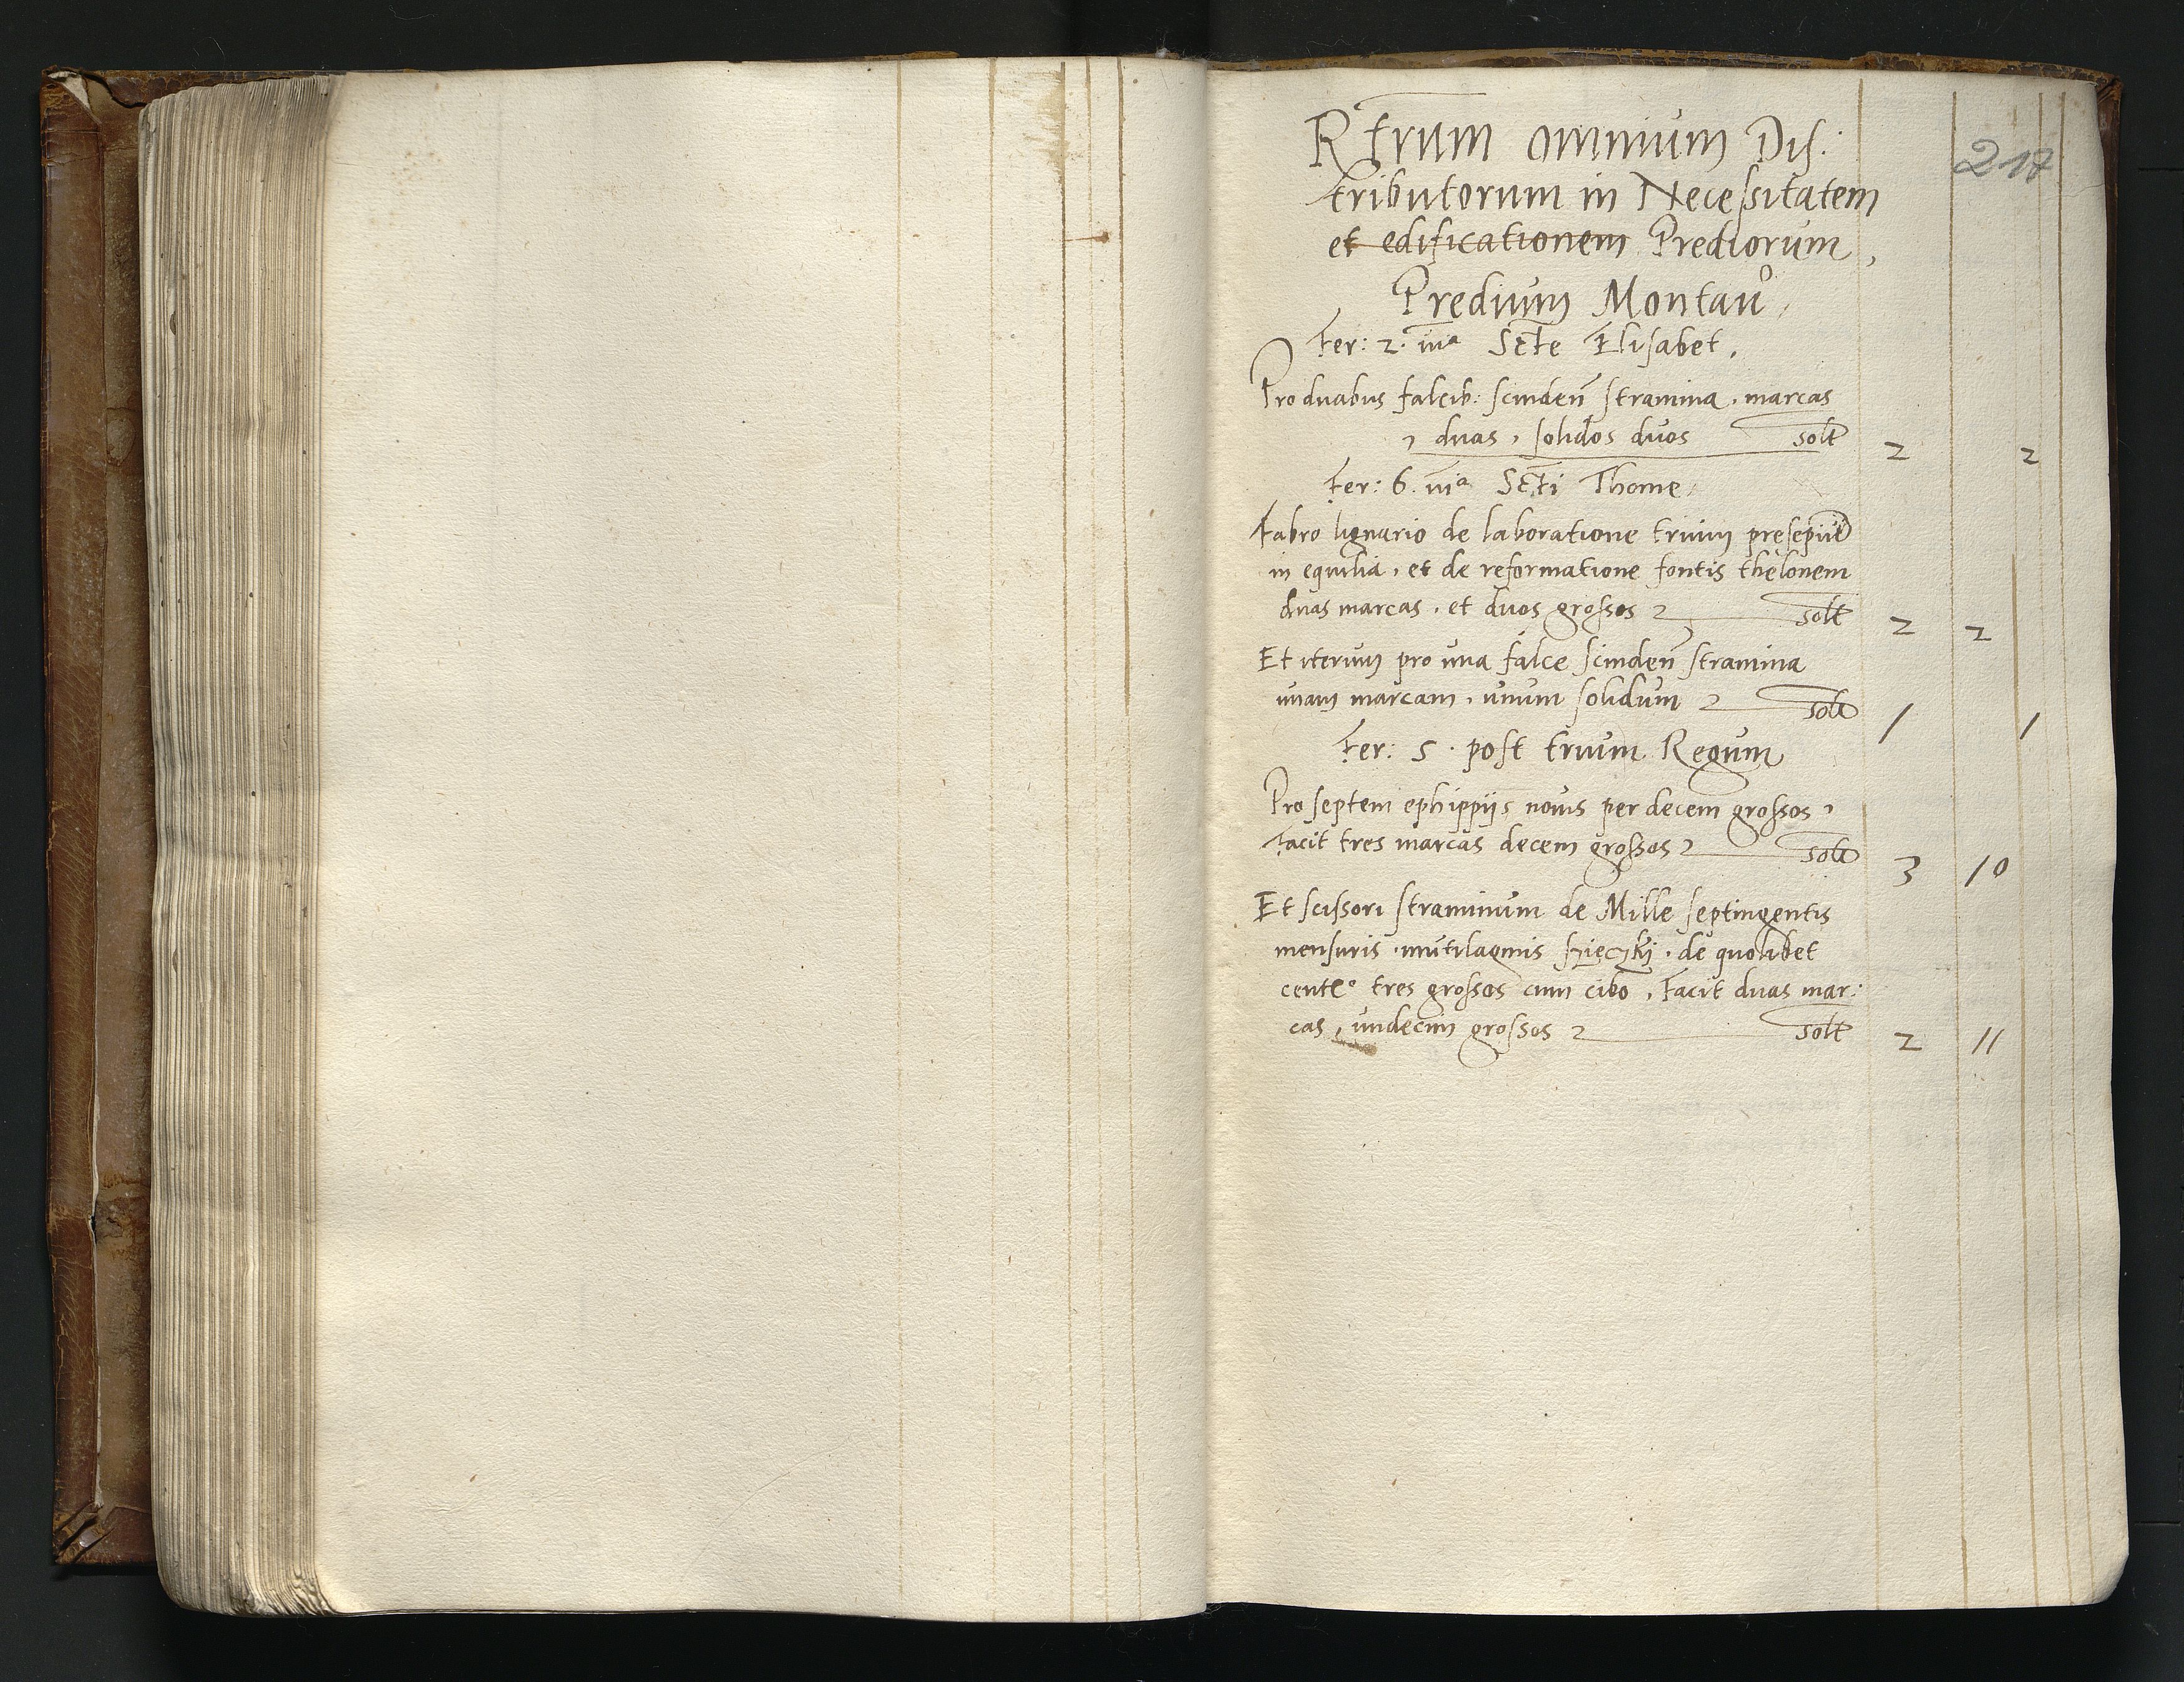 Rr̃um omnium Dis:
tributorum in Necessitatem
et edificationem Prediorum,
217
Predium Montaú
Fer: 2. in̄a Scte Elisabet.
Pro duabus falcib: scinden̄ stramina, marcas
duas, solidos duos solt 2 2
Fer: 6. vi͞a Scti Thome
Fabro lignario de laboratione trium presepiu͞
in equilia, et de reformatione fontis thelonem
duas marcas, et duos grossos solt 2 2
Et iterum pro una falce scinden̄ stramina
unam marcam, unum solidum solt 1 1
Fer: 5. post trium Regum
Pro septem ephippijs novis per decem grossos,
Facit tres marcas decem grossos solt 3 10
Et scissori straminum de Mille septingentis
mensuris de quolibet
cent͞o tres grossos cum cibo, Facit duas mar:
cas, undecim grossos solt 2 11